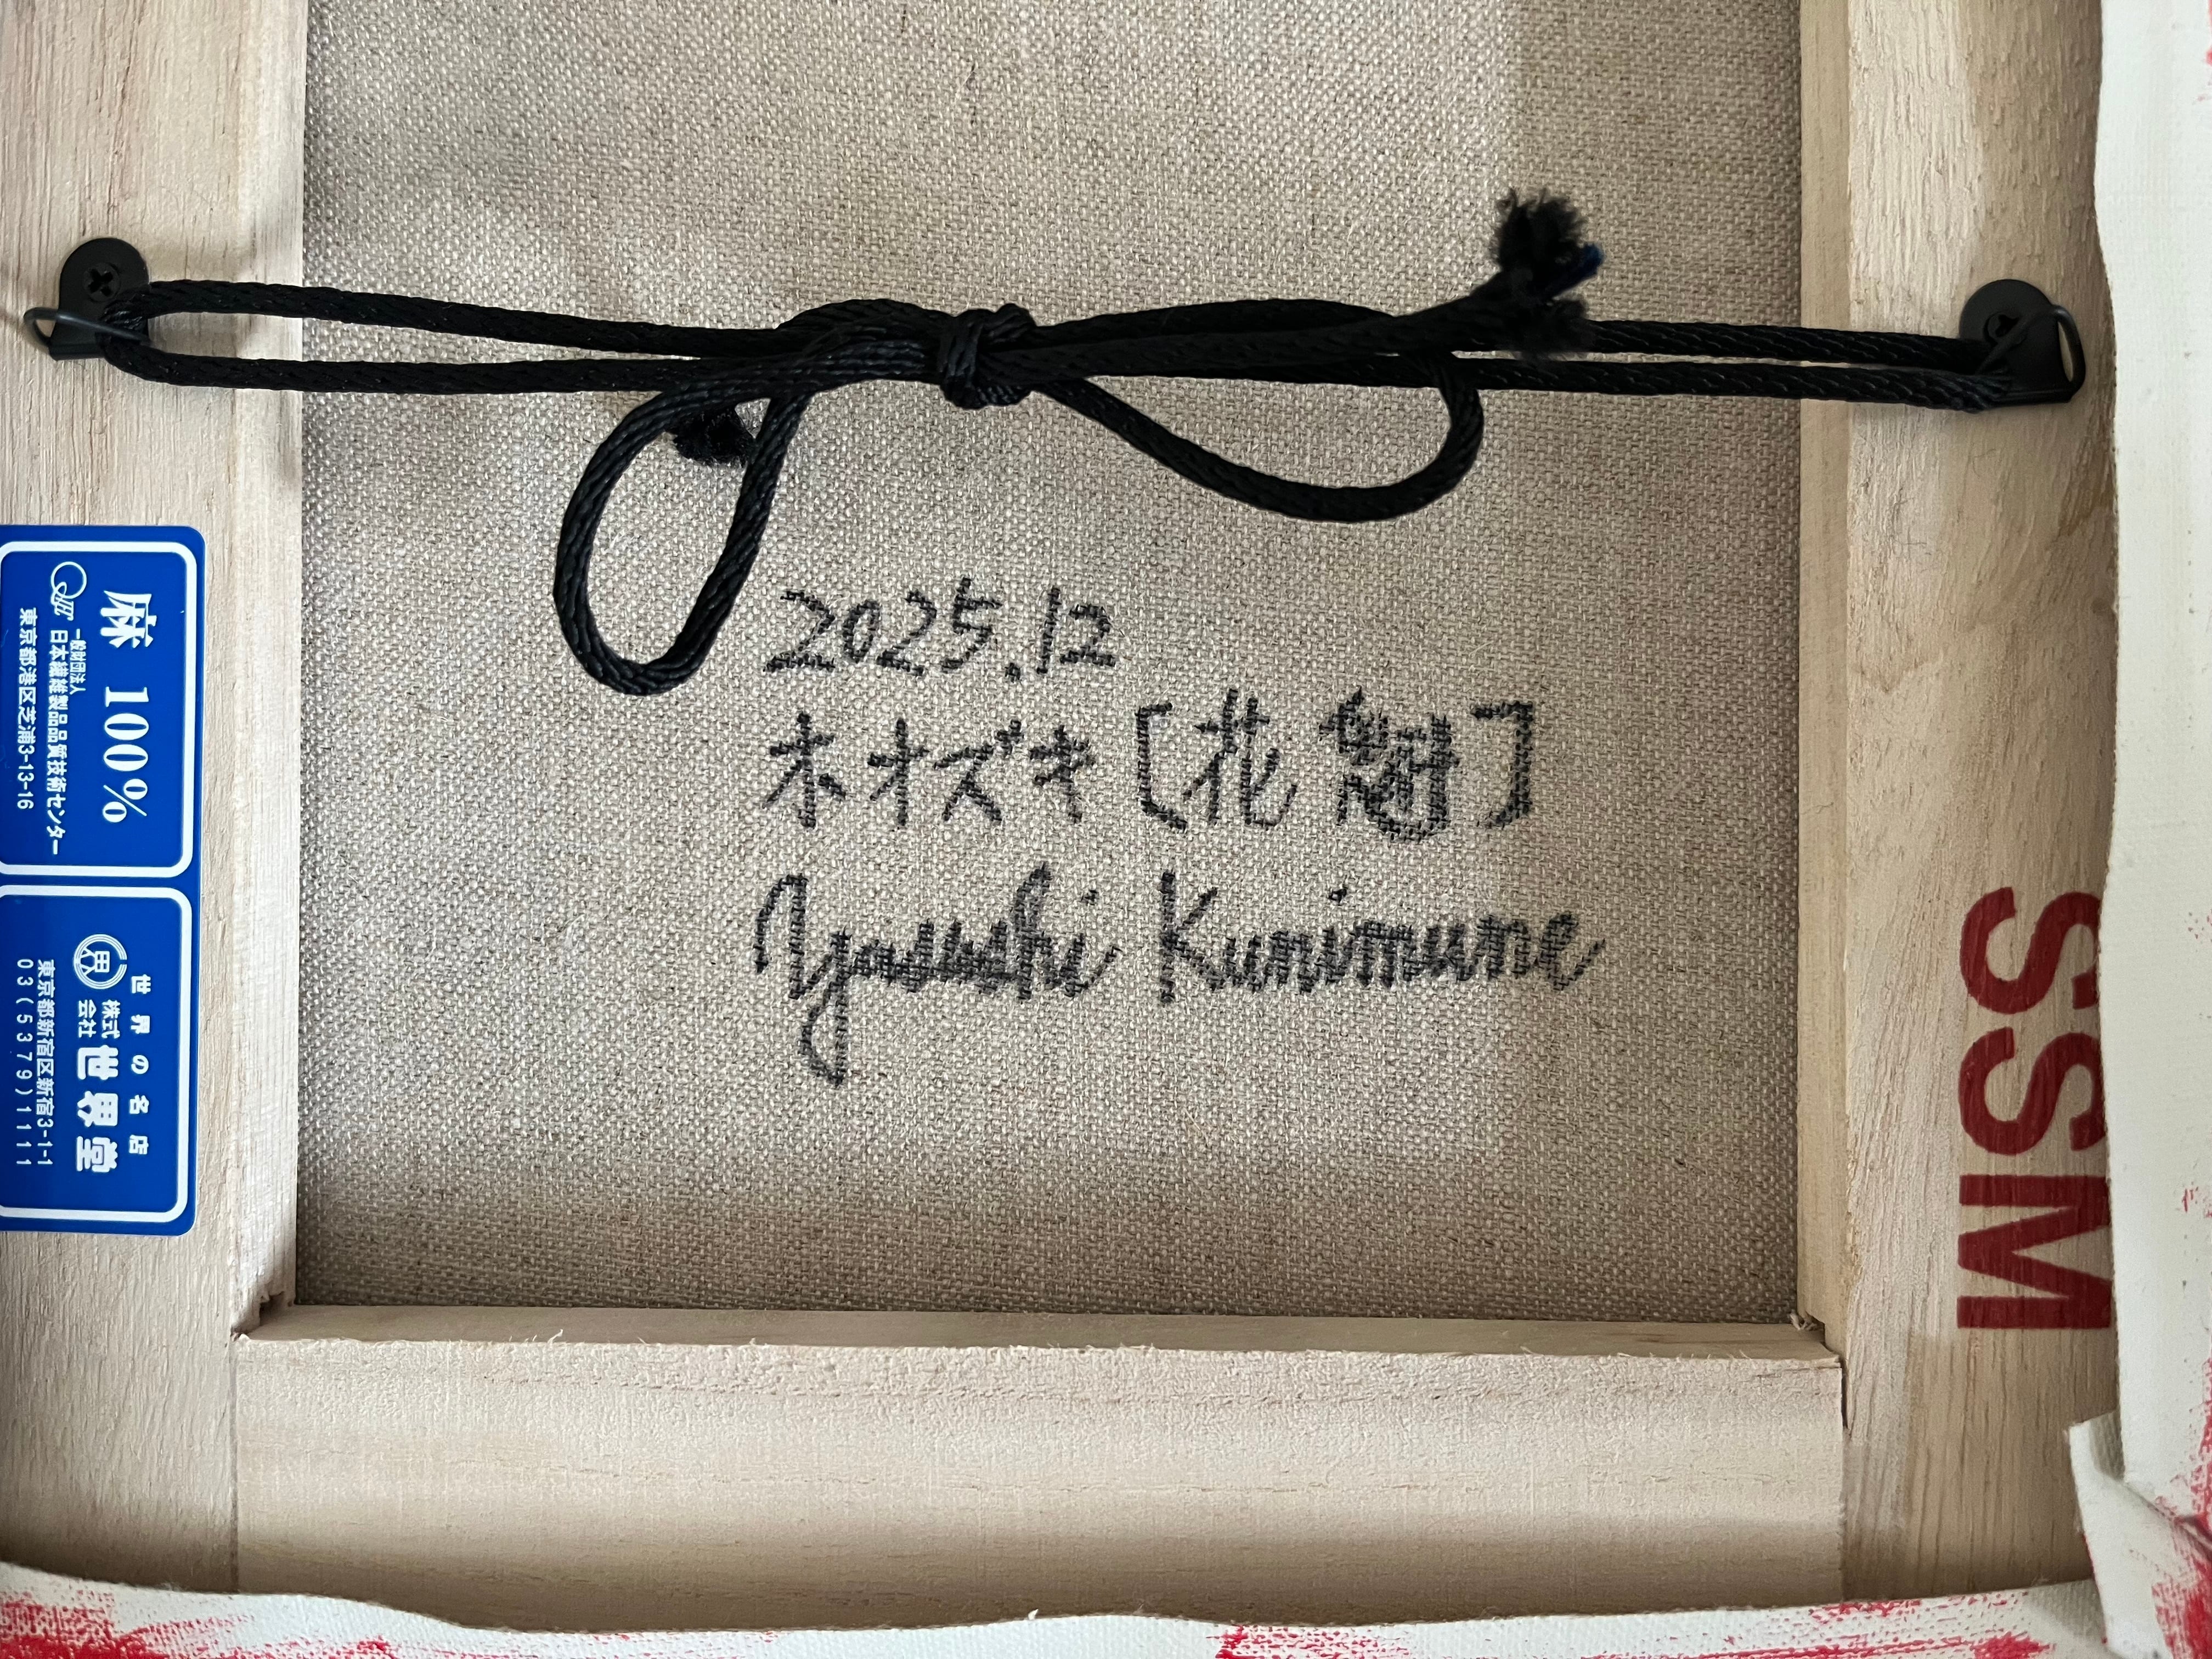 2025.12
ホオズキ[花魁]
Yasushi Kunimune
麻 100%
一般財団法人
日本繊維製品品質技術センター
東京都港区芝浦3-13-16
世界の名店
株式会社 世界堂
東京都新宿区新宿3-1-1
03(5379)1111
SSM